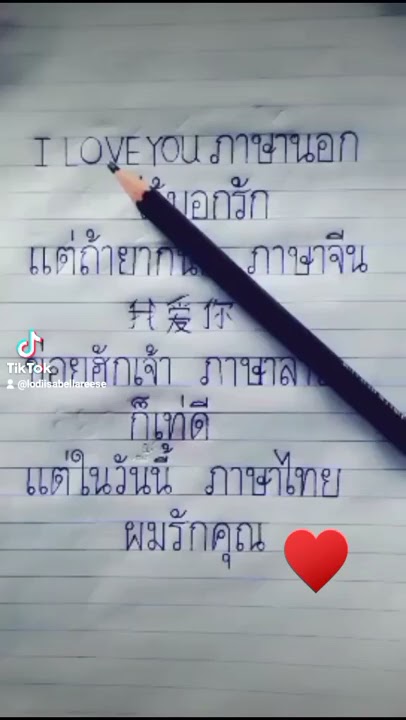 I LOVE YOU ภาษานอก
บอกรัก
แต่ถ้ายาก ภาษาจีน
我爱你
ข่อยฮักเจ้า
ก็เท่ดี
แต่ในวันนี้ ภาษาไทย
ผมรักคุณ
TikTok
@lodiisabellareese